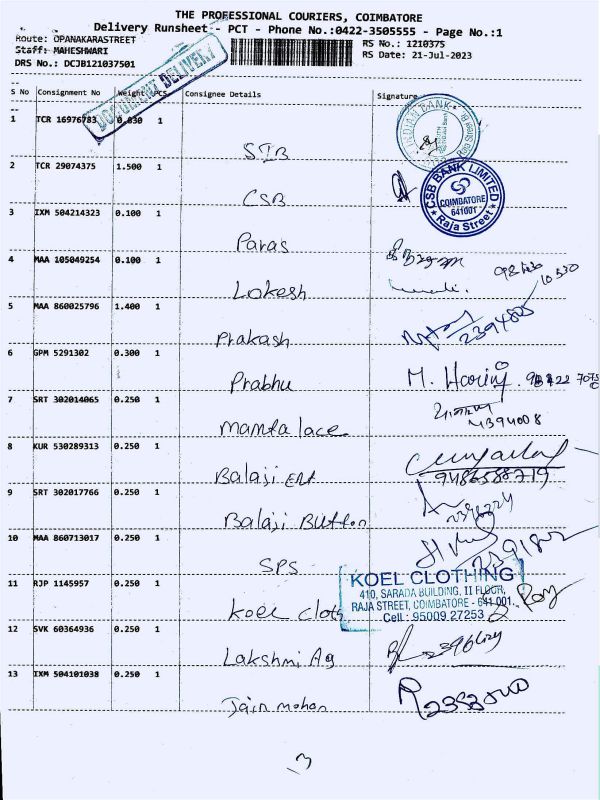 THE PROFESSIONAL COURIERS, COIMBATORE
Delivery Runsheet - PCT - Phone No.:0422-3505555 - Page No.:1
Route: OPANAKARASTREET RS No.: 1210375
Staff: MAHESHWARI RS Date: 21-Jul-2023
DRS No.: DCJB121037501
DOCUMENT DELIVERY
S No Consignment No Weight PCS Consignee Details Signature
1 TCR 16976783 0.030 1
INDIAN BANK
SIB
2 TCR 29074375 1.500 1
CSB BANK LIMITED
COIMBATORE
641001
Raja Street
CSB
3 IXM 504214323 0.100 1
Paras
4 MAA 105049254 0.100 1
Lokesh
5 MAA 860025796 1.400 1
Prakash 2394805
6 GPM 5291302 0.300 1
Prabhu M.
7 SRT 302014065 0.250 1
Mamta lace 4394008
8 KUR 530289313 0.250 1
Balaji Ent 9486588719
9 SRT 302017766 0.250 1
Balaji Button
10 MAA 860713017 0.250 1
SPS
11 RJP 1145957 0.250 1
KOEL CLOTHING
410, SARADA BUILDING, II FLOOR,
RAJA STREET, COIMBATORE - 641 001.
Cell : 95009 27253
Koel Cloth
12 SVK 60364936 0.250 1
Lakshmi Ag
13 IXM 504101038 0.250 1
Jain mohan
13